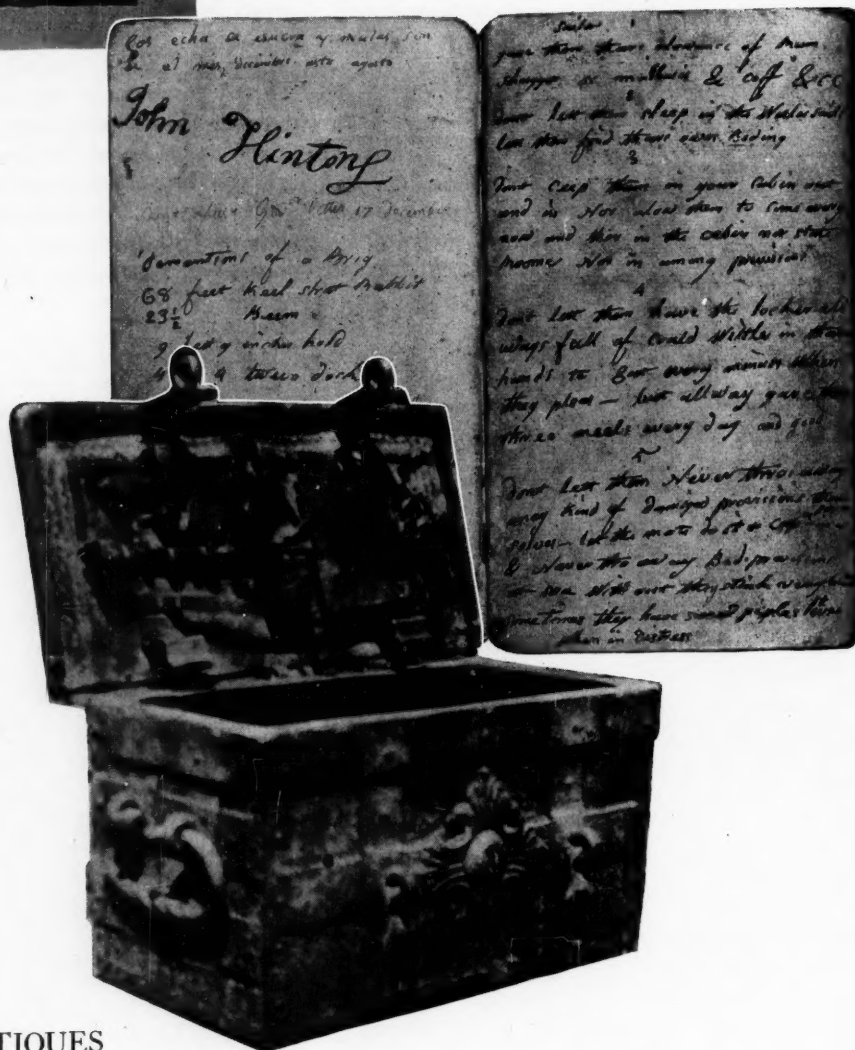 Por echa
el mes, Decembre asta agosto
John
Hintons
17 December
Demantions of a Brig
68 feet Keel strat Rabbit
23½ Beem
9 feet 9 inches hold
4 twees deck
sailor 1
gave them thare alowance of Rum
& coff & cc
2
Dont Let them sleep in the
Let them find thare own Beding
3
Dont Ceip them in your Cabin out
and in Nor alow them to Come
now and then in the cabin nor state
roomes Nor in among provisions
4
Dont Let them have the locker all
ways full of Could Vittle in thare
hands to Eat every minnit When
they pleas — but allway gave them
three meals every day and good
5
Dont Let them Never throw away
any Kind of Damiged provisions them
selves — Let the mate do it or Cap
& Never thro away Bad provisions
at sea With out they stink very bad
sometimes they have saved peples lives
when in Distress
TIQUES